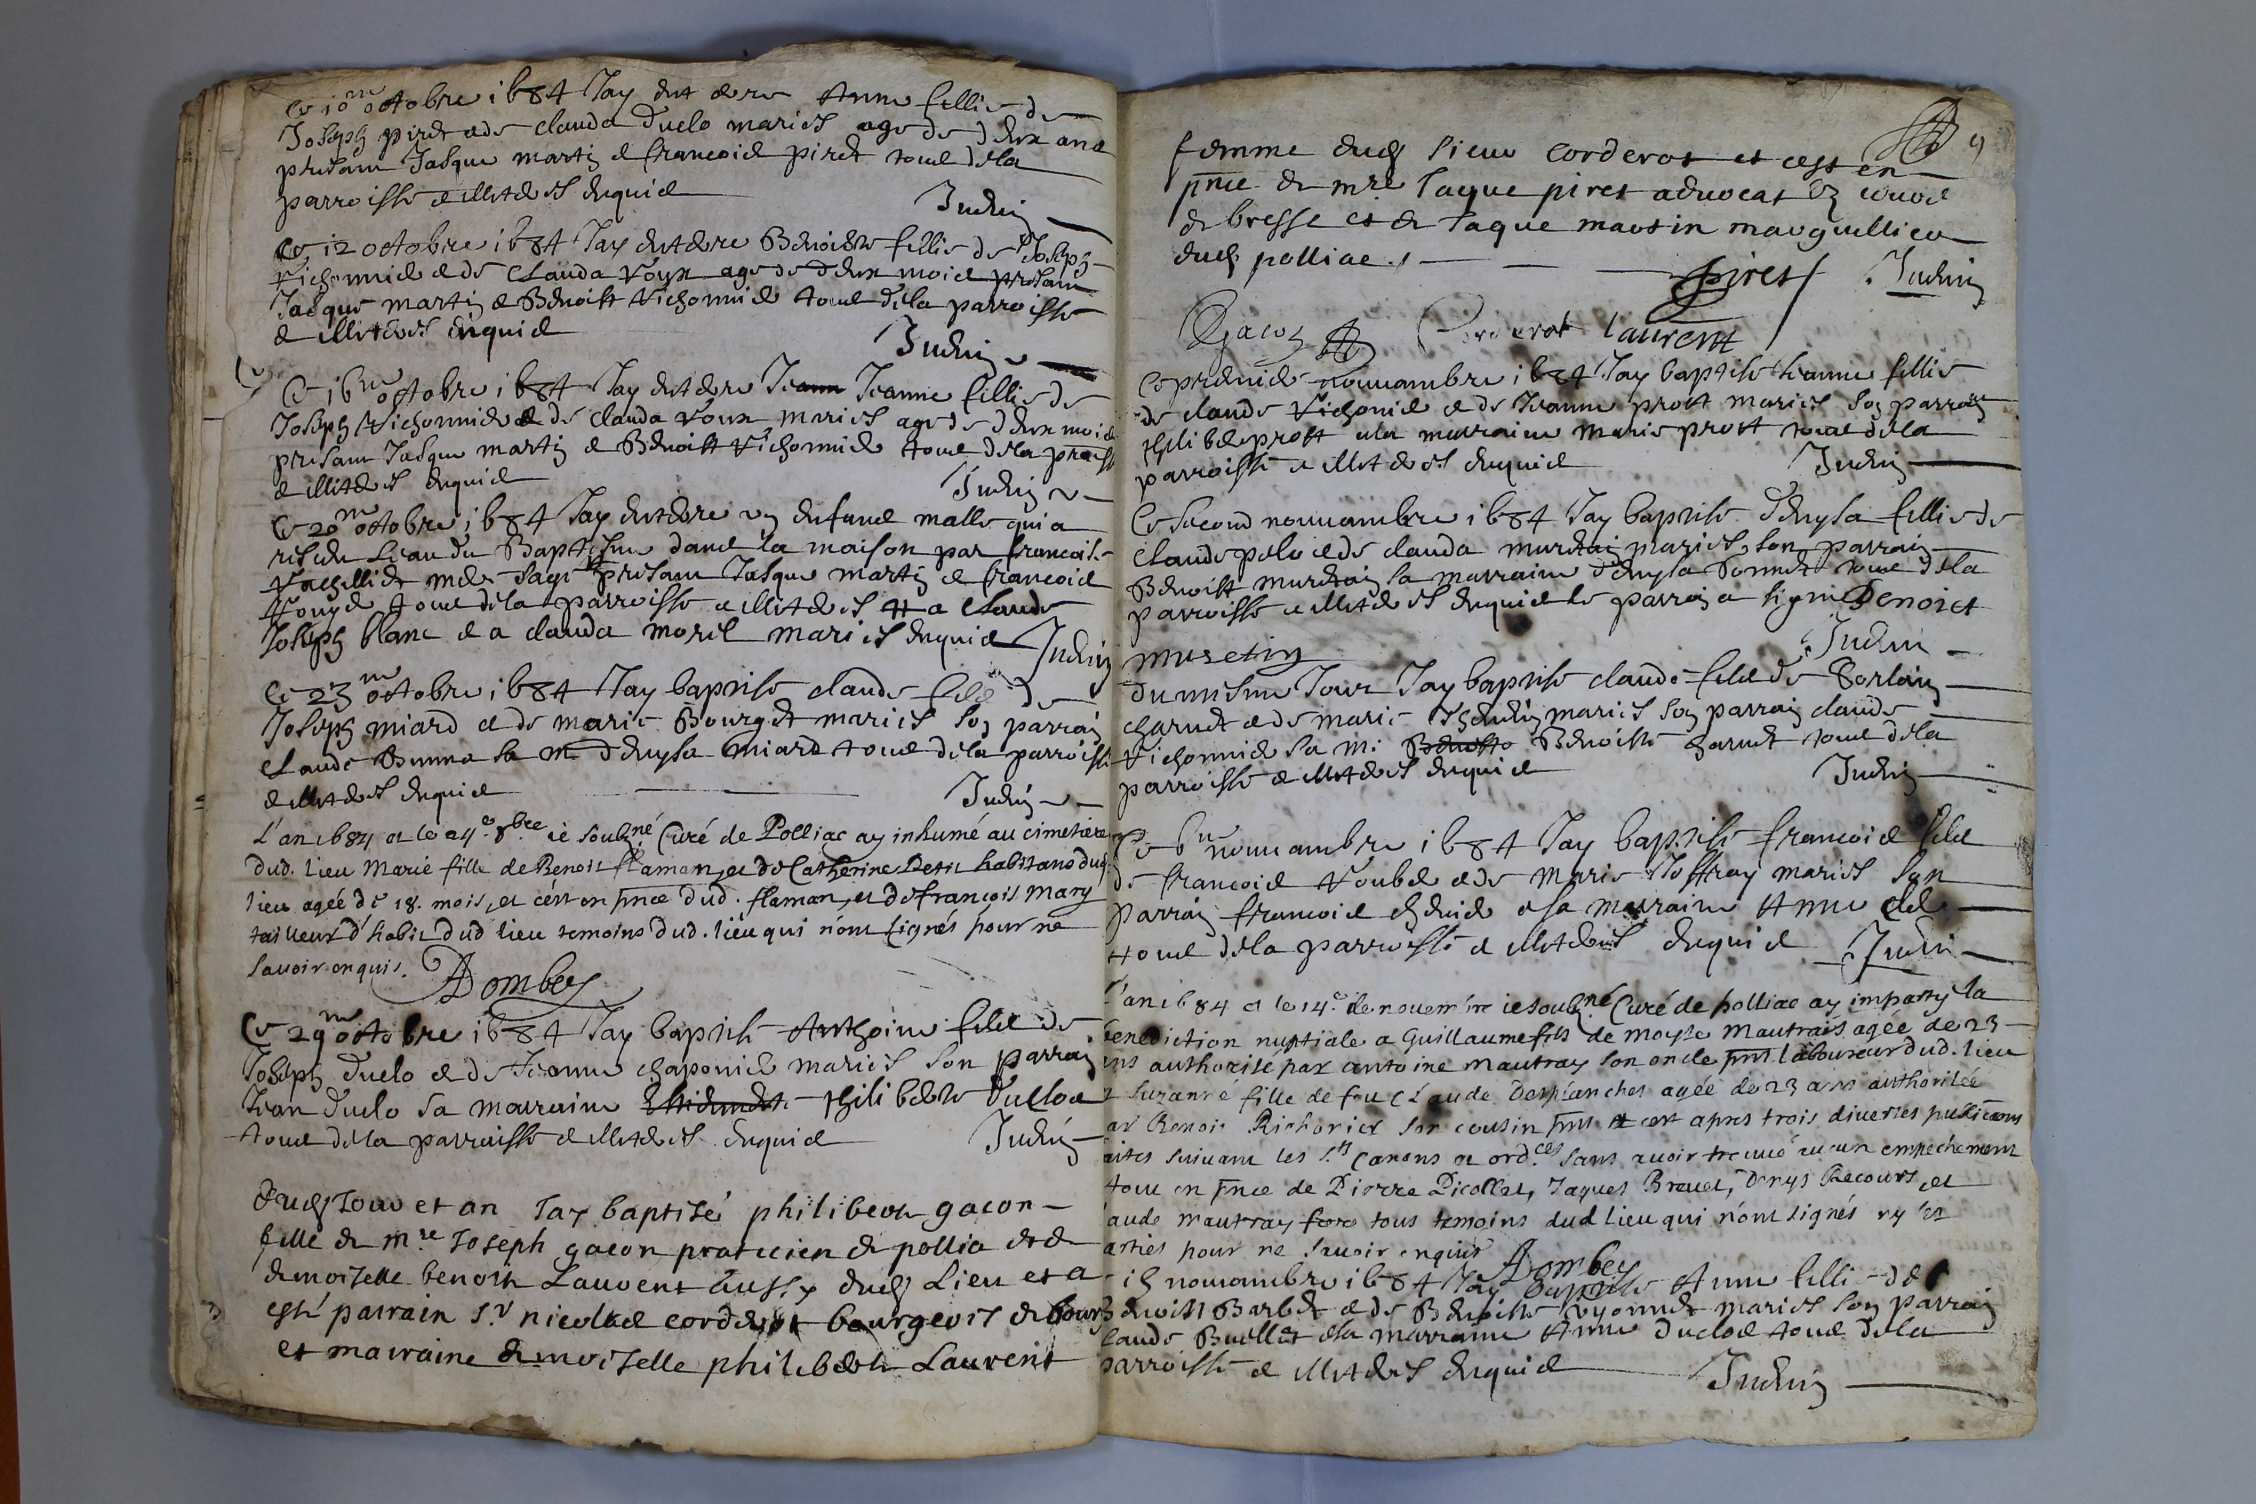 Ce 10me octobre 1684 Jay enterre Anne fillie de
Joseph piret e de Clauda duclo mariés age de deux ans
presant Jasque martin e francois piret tous de la
parroisse e illiteres enquis
Juenin
Ce 12 octobre 1684 Jay enterre Benoiste fillie de Joseph
Vichonnier e de Clauda Voux age de deux mois presant
Jasque martin e Benoist Vichonnier tous de la parroisse
e illiteres enquis
Juenin
Ce 16me octobre 1684 Jay enterre Jeann Jeanne fillie de
Joseph Vichonnier e de Clauda Voux mariés age de deux mois
presant Jasque martin e Benoist Vichonnier tous de la
e illiteres enquis
Juenin
Ce 20me octobre 1684 Jay enterre un enfant malle qui a
reseu Leau du Baptesme dans la maison par francoise
mere sage presant Jasque martin e francois
tous de la parroisse e illiteres a Claude
Joseph blanc e a clauda morel mariés enquis
Juenin
Ce 23me octobre 1684 Jay baptisé claude fils de
Joseph miard e de marie Bourget mariés son parrain
Claude sa m denysa miard tous de la parroisse
e illiteres enquis
Juenin
L'an 1684 et le 24e 8bre ie soubné Curé de Polliac ay inhumé au cimetiere
dud. lieu Marie fille de Benoit flaman, et de Catherine Petit habitans dud
lieu agée de 18. mois, et c'est en pnce dud. flaman, et de françois Mary
tailleur d'habit dud lieu temoins dud. lieu qui n'ont signés pour ne
savoir enquis.
Dombey
Ce 29me octobre 1684 Jay baptisé Anthoine fils de
Joseph duclo e de Jeanne chaponier mariés son parrain
Jean duclo sa marraine philiberte Duclos
tous de la parroisse e illiteres enquis
Juenin
dud Jour et an Jay baptisé philiberte gacon
fille de mre Joseph gacon praticien de pollia et de
demoiselle benoite Laurent aussy dud Lieu et a
esté parrain sr nicolas corderot bourgeois de bourg
et marraine demoiselle philiberte Laurent
9
femme dud sieur corderot et cest en
pnce de mre Jaque piret advocat
de bresse et de Jaque martin marguillier
dud polliac
piret
Juenin
Gacon
Corderot laurent
Ce premier nouuambre 1684 Jay baptisé Jeanne fillie
de claude Vichonier e de Jeanne prost mariés son parrain
philibe prost e la marraine marie prost tous de la
parroisse e illiteres enquis
Juenin
Ce second nouuambre 1684 Jay baptisé denysa fillie de
Claude pelo e de clauda muretin mariés, son parrain
Benoist muretin sa marraine denysa tous de la
parroisse e illiteres enquis le parrain a signe Benoist
muretin
Juenin
du mesme Jour Jay baptisé claude fils de Sorlin
charnet e de marie mariés son parrain claude
Vichonnier sa m: Benoiste Benoiste charnet tous de la
parroisse e illiteres enquis
Juenin
Ce 6me nouuambre 1684 Jay baptisé francois fils
de francois e de Marie Joffray mariés son
parrain francois e sa marraine Anne
tous de la parroisse e illiteres enquis
Juenin
L'an 1684 et le 14e de nouembre ie soubné Curé de polliac ay imparty la
benediction nuptiale a Guillaume fils de moyse mautray agée de 23
ans authorisé par antoine mautray son oncle pnt laboureur dud. lieu
et Suzanne fille de feu Claude Desplanches agée de 23 ans authorisée
ar Benoit Richonier son cousin pnt et c'est apres trois diverses publicaons
aites suivant les sts Canons et ordces sans avoir treuué aucun empechement
tout en pnce de Pierre Picollet, Jaques Breuet, Denys Recours, et
aude mautray frere tous temoins dud lieu qui n'ont signés ny les
arties pour ne savoir enquis
Dombey
nouuambre 1684 Jay baptisé Anne fillie de
Benoist Barbet e de Benoiste mariés son parrain
laude Buellet e la marraine Anne duclos tous de la
parroisse e illiteres enquis
Juenin